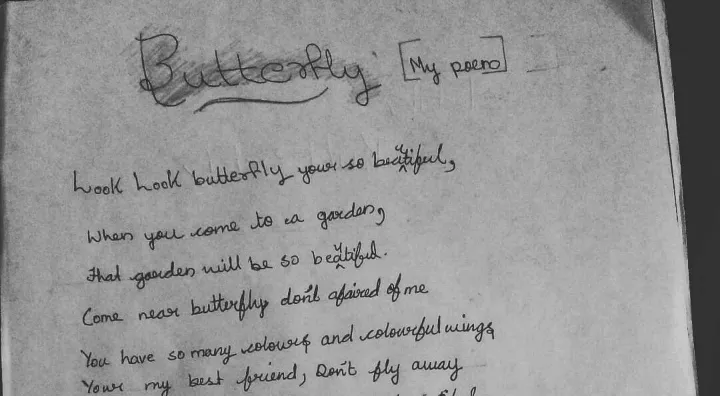 Butterfly [My poem]
Look Look butterfly your so beautiful,
When you come to a garden,
that garden will be so beautiful.
Come near butterfly don't afaired of me
You have so many colours and colourful wings
Your my best friend, Don't fly away